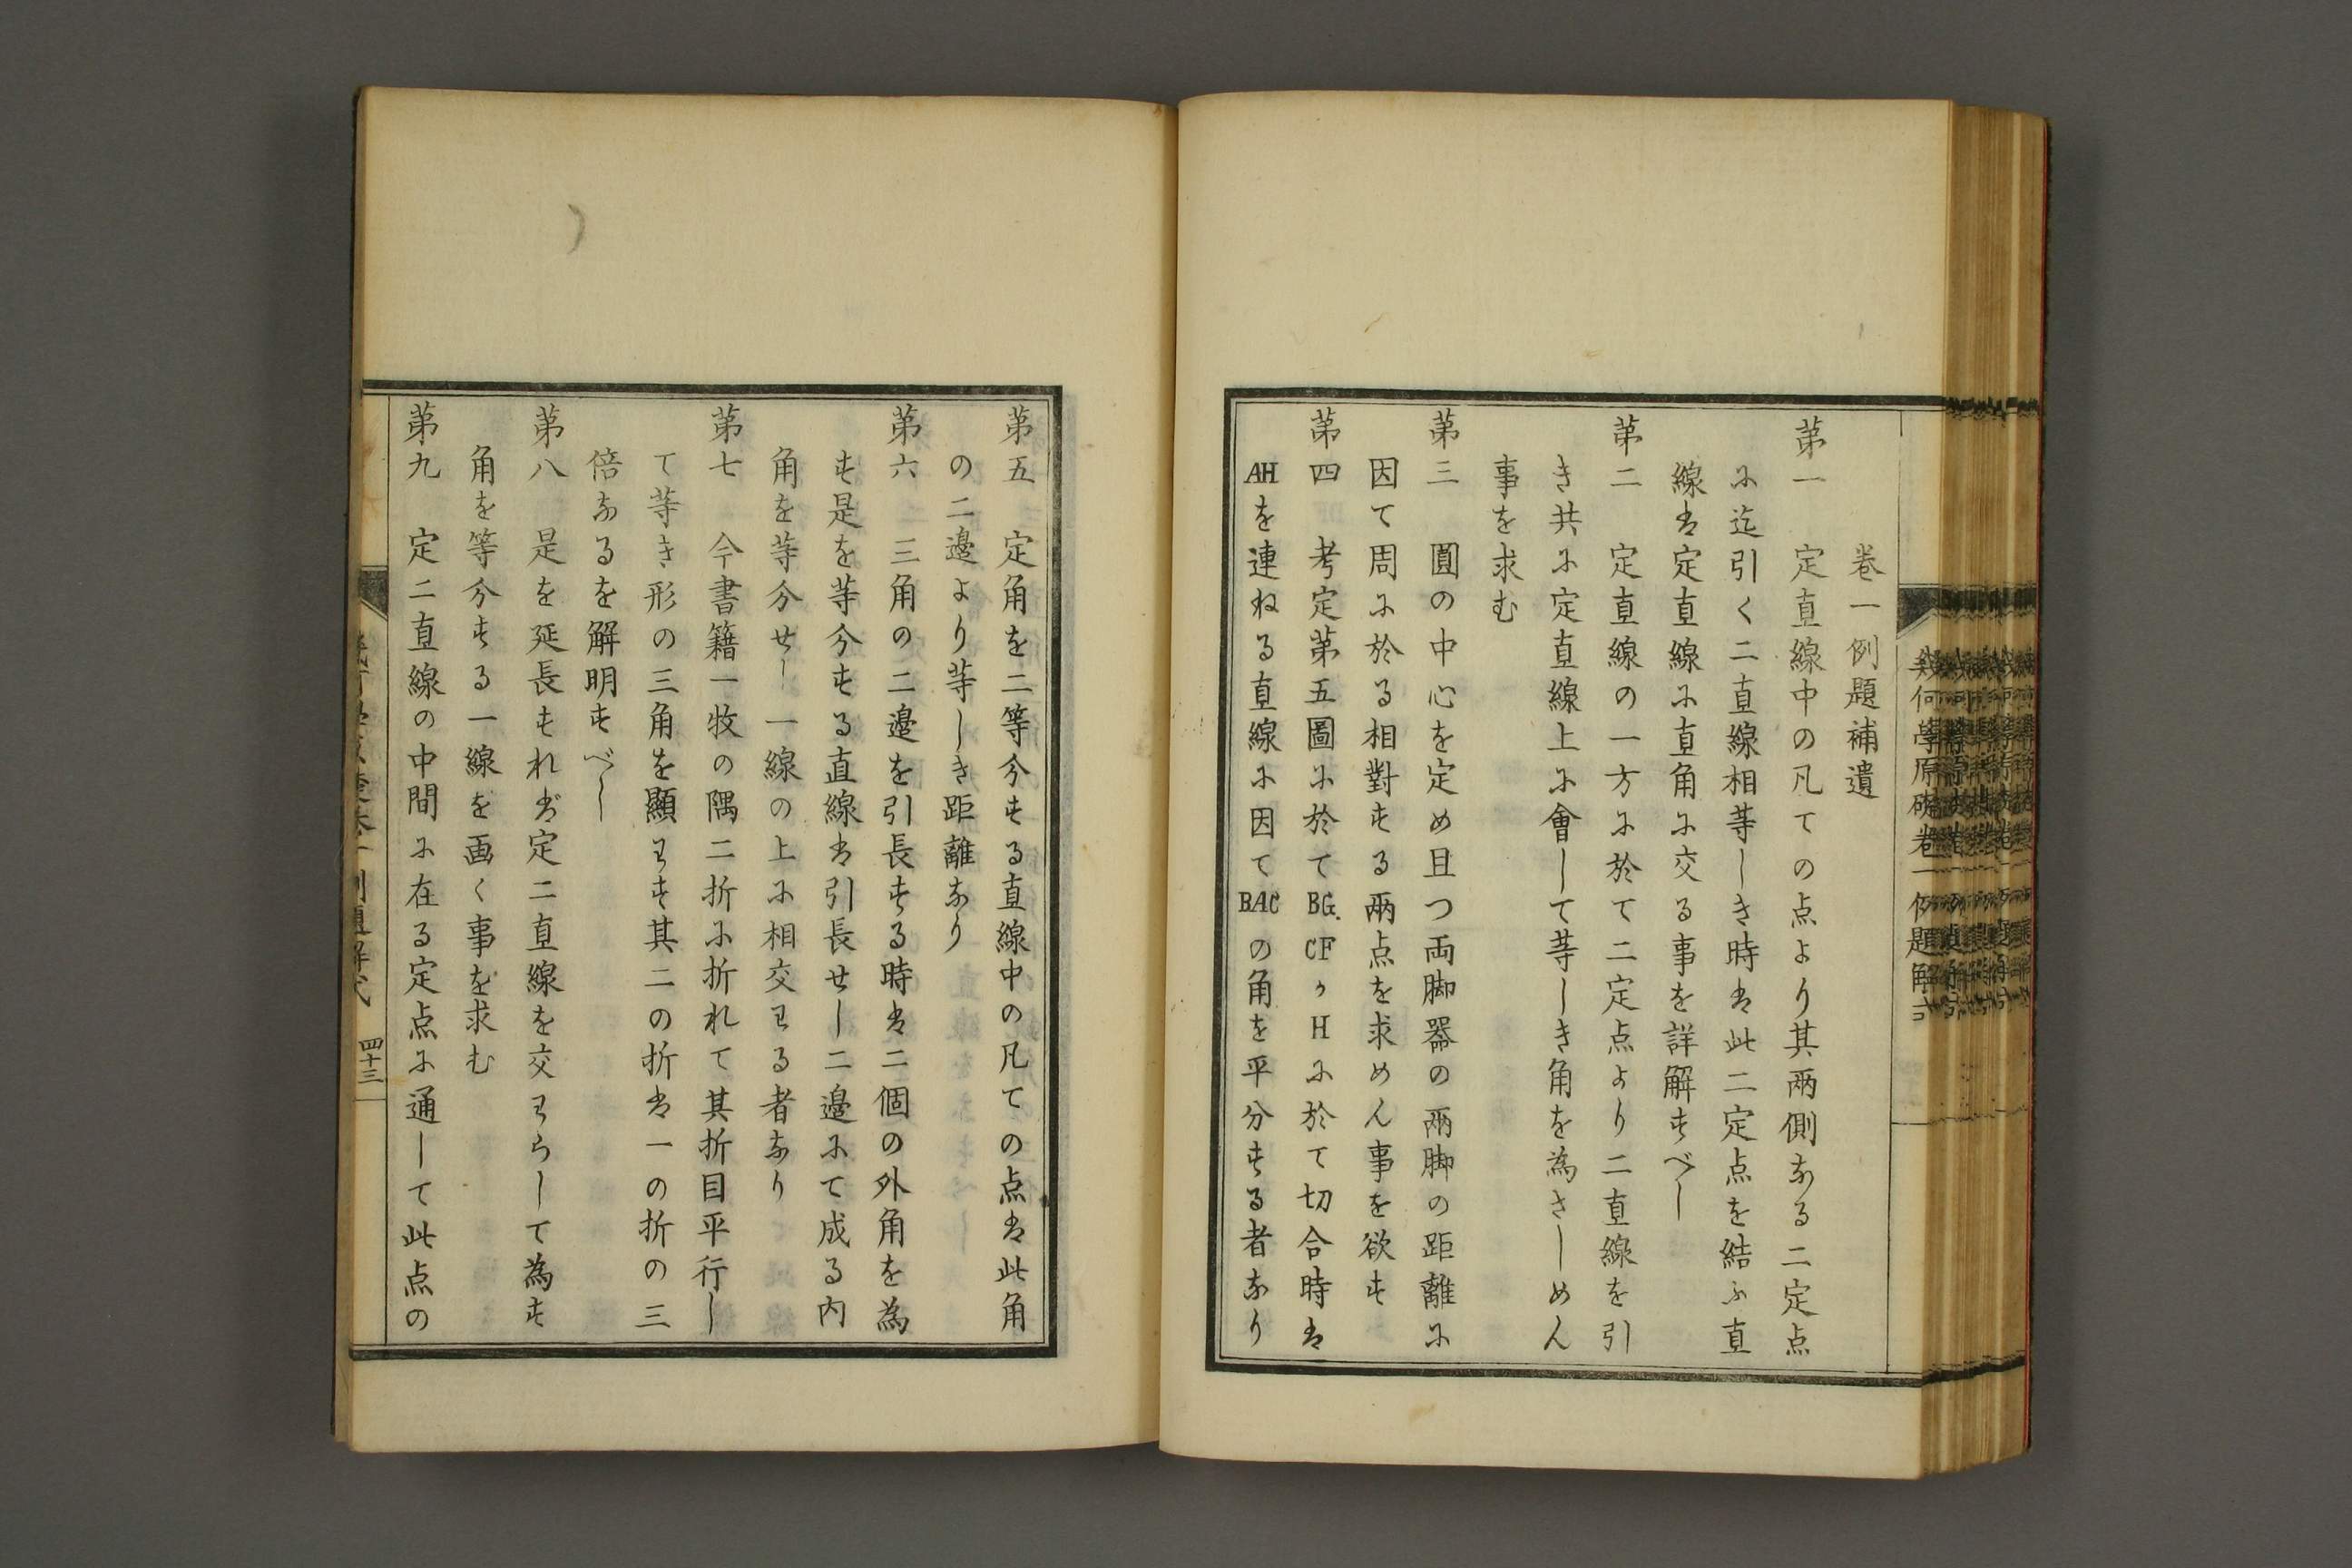 卷一例題補遺
第一　定直線中の凡ての点より其兩側なる二定点
に迄引く二直線相等しき時は此二定点を結ふ直
線は定直線に直角に交る事を詳解すべし
第二　定直線の一方に於て二定点より二直線を引
き共に定直線上に會して等しき角を為さしめん
事を求む
第三　圓の中心を定め且つ両脚器の兩脚の距離に
因て周に於る相對する兩点を求めん事を欲す
第四　考定第五圖に於てBG.CFヶHに於て切合時は
AHを連ねる直線に因てBACの角を平分する者なり
幾何學原礎卷一例題解式
第五　定角を二等分する直線中の凡ての点は此角
の二邉より等しき距離なり
第六　三角の二邉を引長する時は二個の外角を為
す是を等分する直線は引長せし二邉にて成る内
角を等分せし一線の上に相交わる者なり
第七　今書籍一牧の隅二折に折れて其折目平行し
て等き形の三角を顯わす其二の折は一の折の三
倍なるを解明すべし
第八　是を延長すれば定二直線を交わらして為す
角を等分する一線を画く事を求む
第九　定二直線の中間に在る定点に通して此点の
四十三